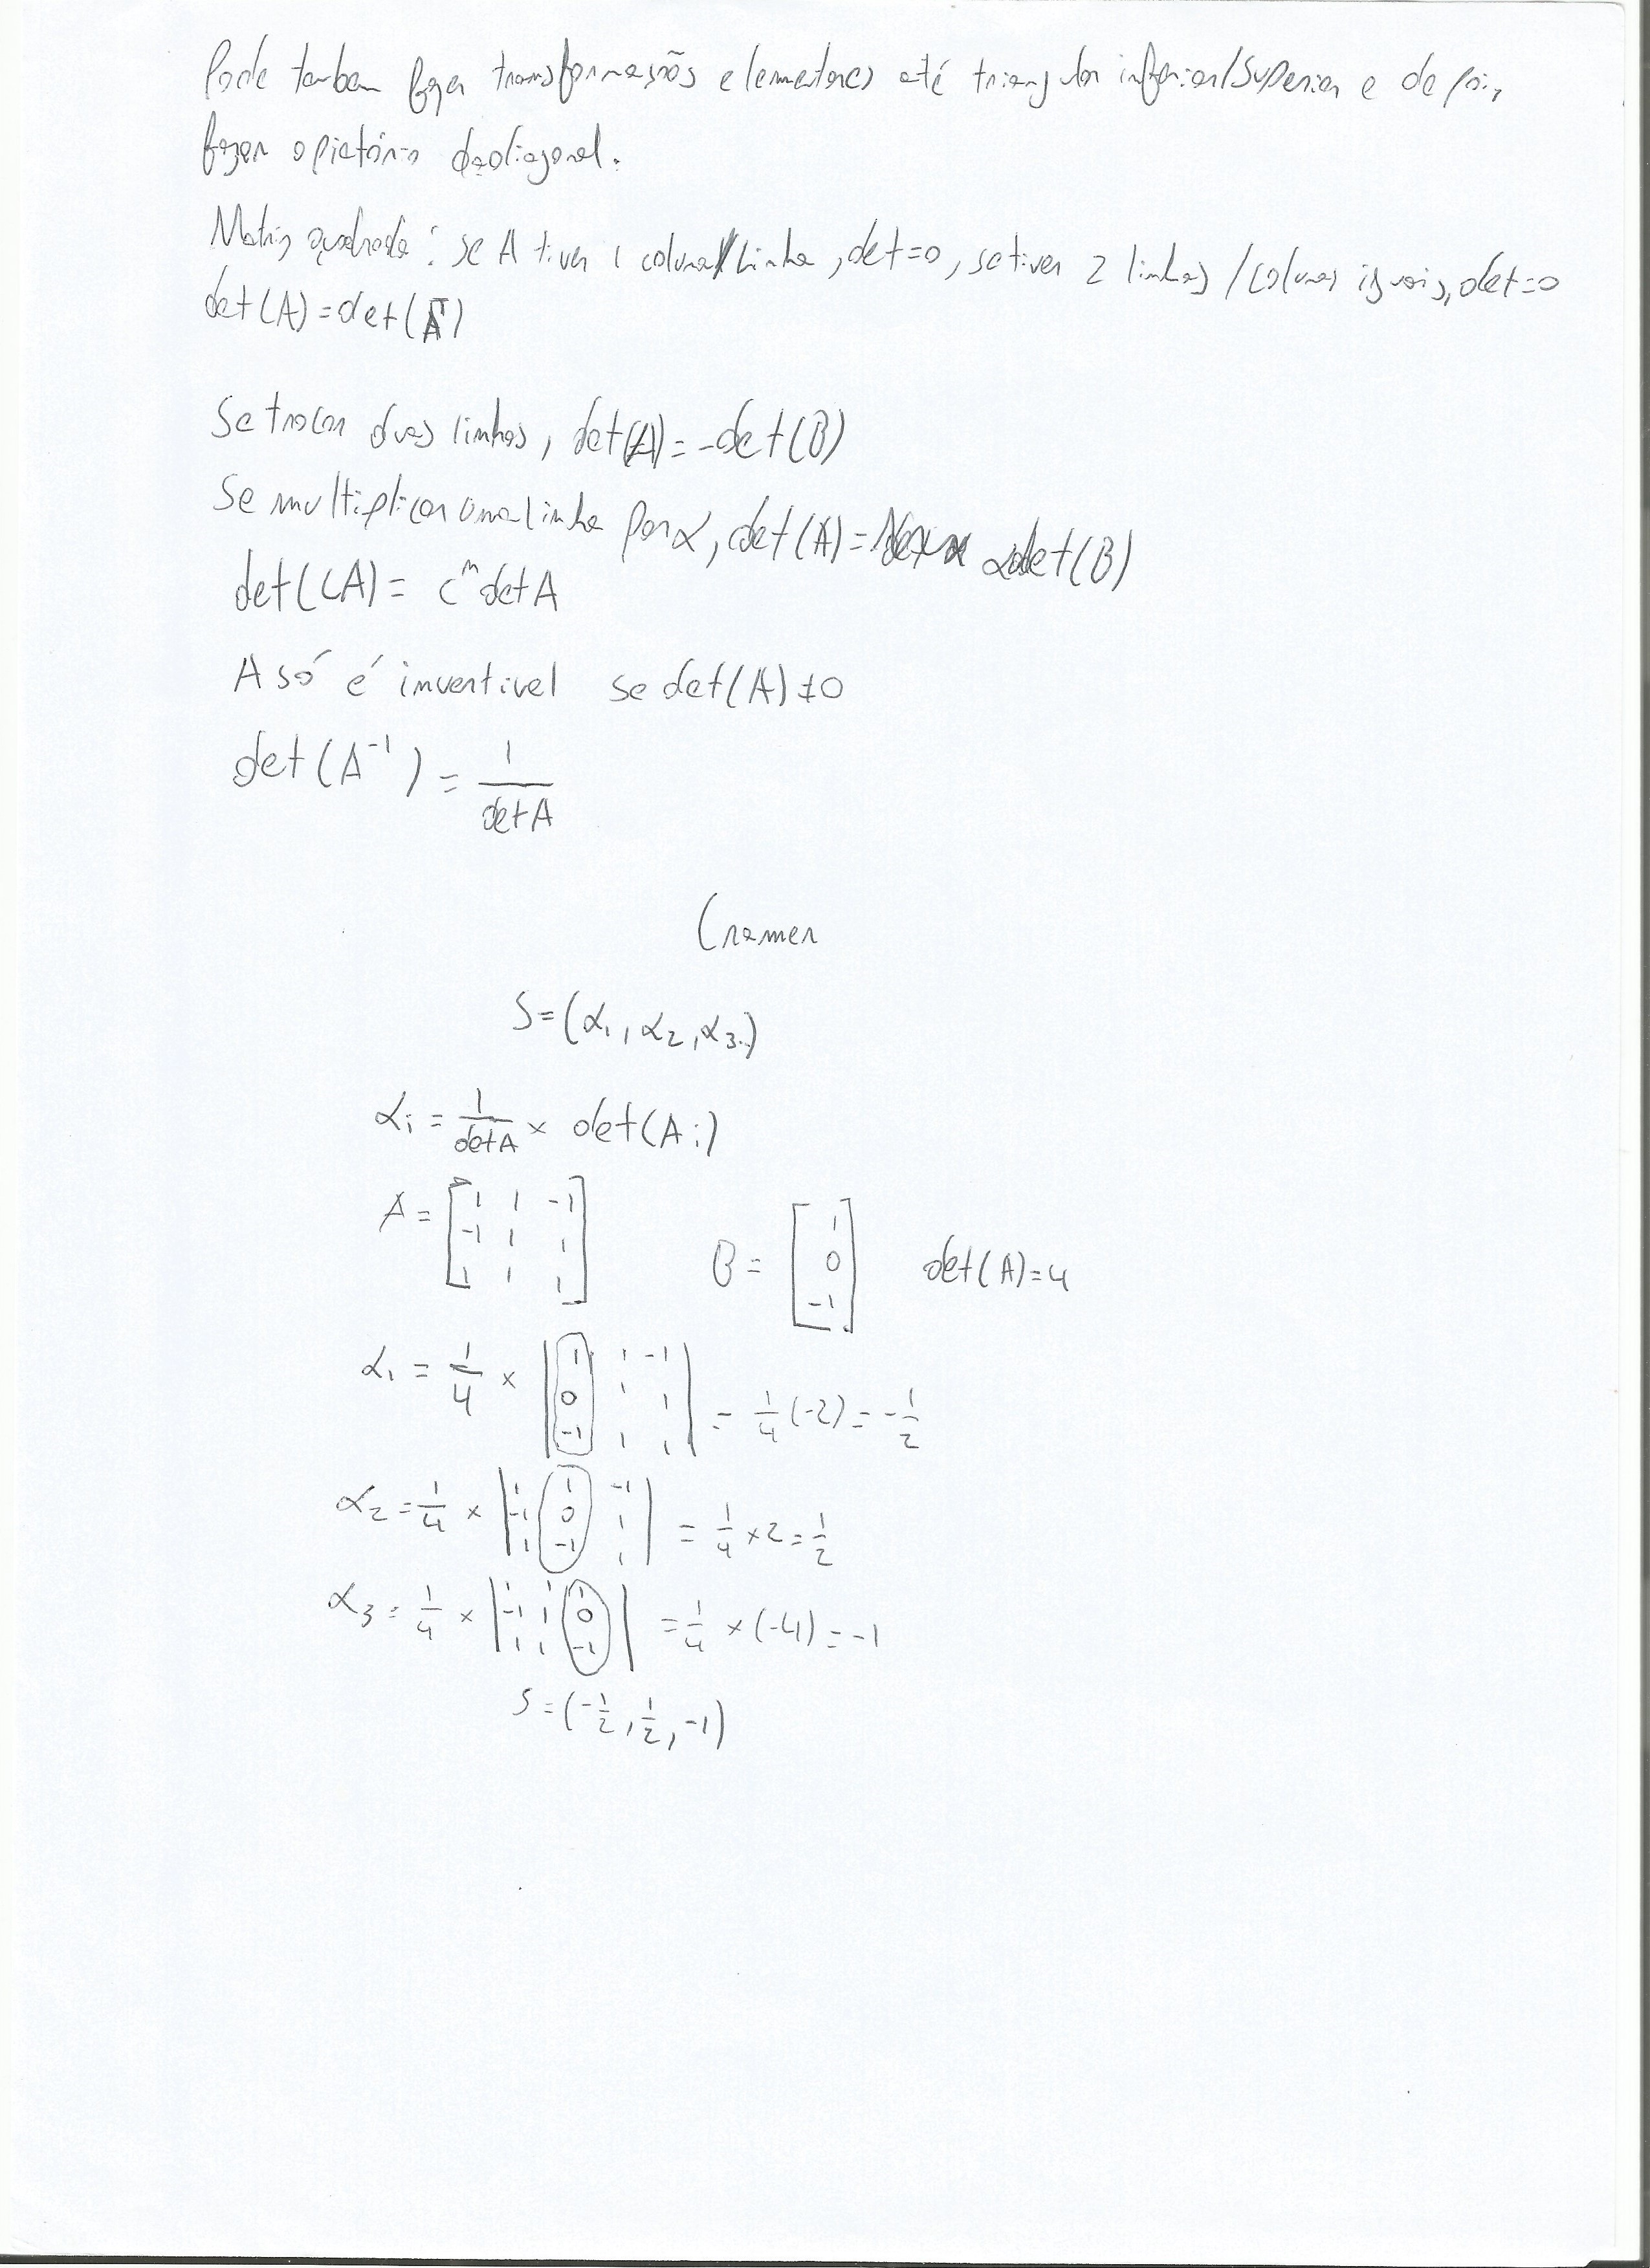 Pode tambem fazer transformações elementares até triangular inferior/superior e depois,
fazer o piatório da diagonal.
Matriz quadrada: se A tiver 1 coluna/linha, det=0, se tiver 2 linhas/colunas iguais, det=0
det(A)=det(Aᵀ)
Se trocar duas linhas, det(A)=-det(B)
Se multiplicar uma linha por α, det(A)= αdet(B)
det(CA)= cⁿ det A
A só é invertivel se det(A)≠0
det(A⁻¹) = 1/det A
Cramer
S=(α₁, α₂, α₃)
αᵢ = 1/det A × det(Aᵢ)
A = [1 1 -1; -1 1 1; 1 1 1] B = [1; 0; -1] det(A)=4
α₁ = 1/4 × |1 1 -1; 0 1 1; -1 1 1| = 1/4 (-2) = -1/2
α₂ = 1/4 × |1 1 -1; -1 0 1; 1 -1 1| = 1/4 × 2 = 1/2
α₃ = 1/4 × |1 1 1; -1 1 0; 1 1 -1| = 1/4 × (-4) = -1
S = (-1/2, 1/2, -1)